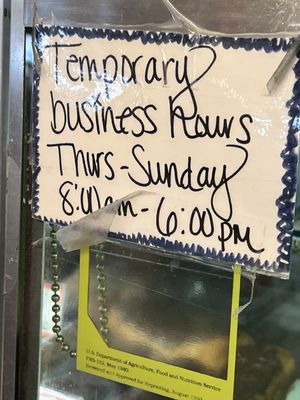 Temporary
business Hours
Thurs-Sunday
8:00am-6:00pm
U.S. Department of Agriculture, Food and Nutrition Service
Reviewed and Approved for Reprinting, August